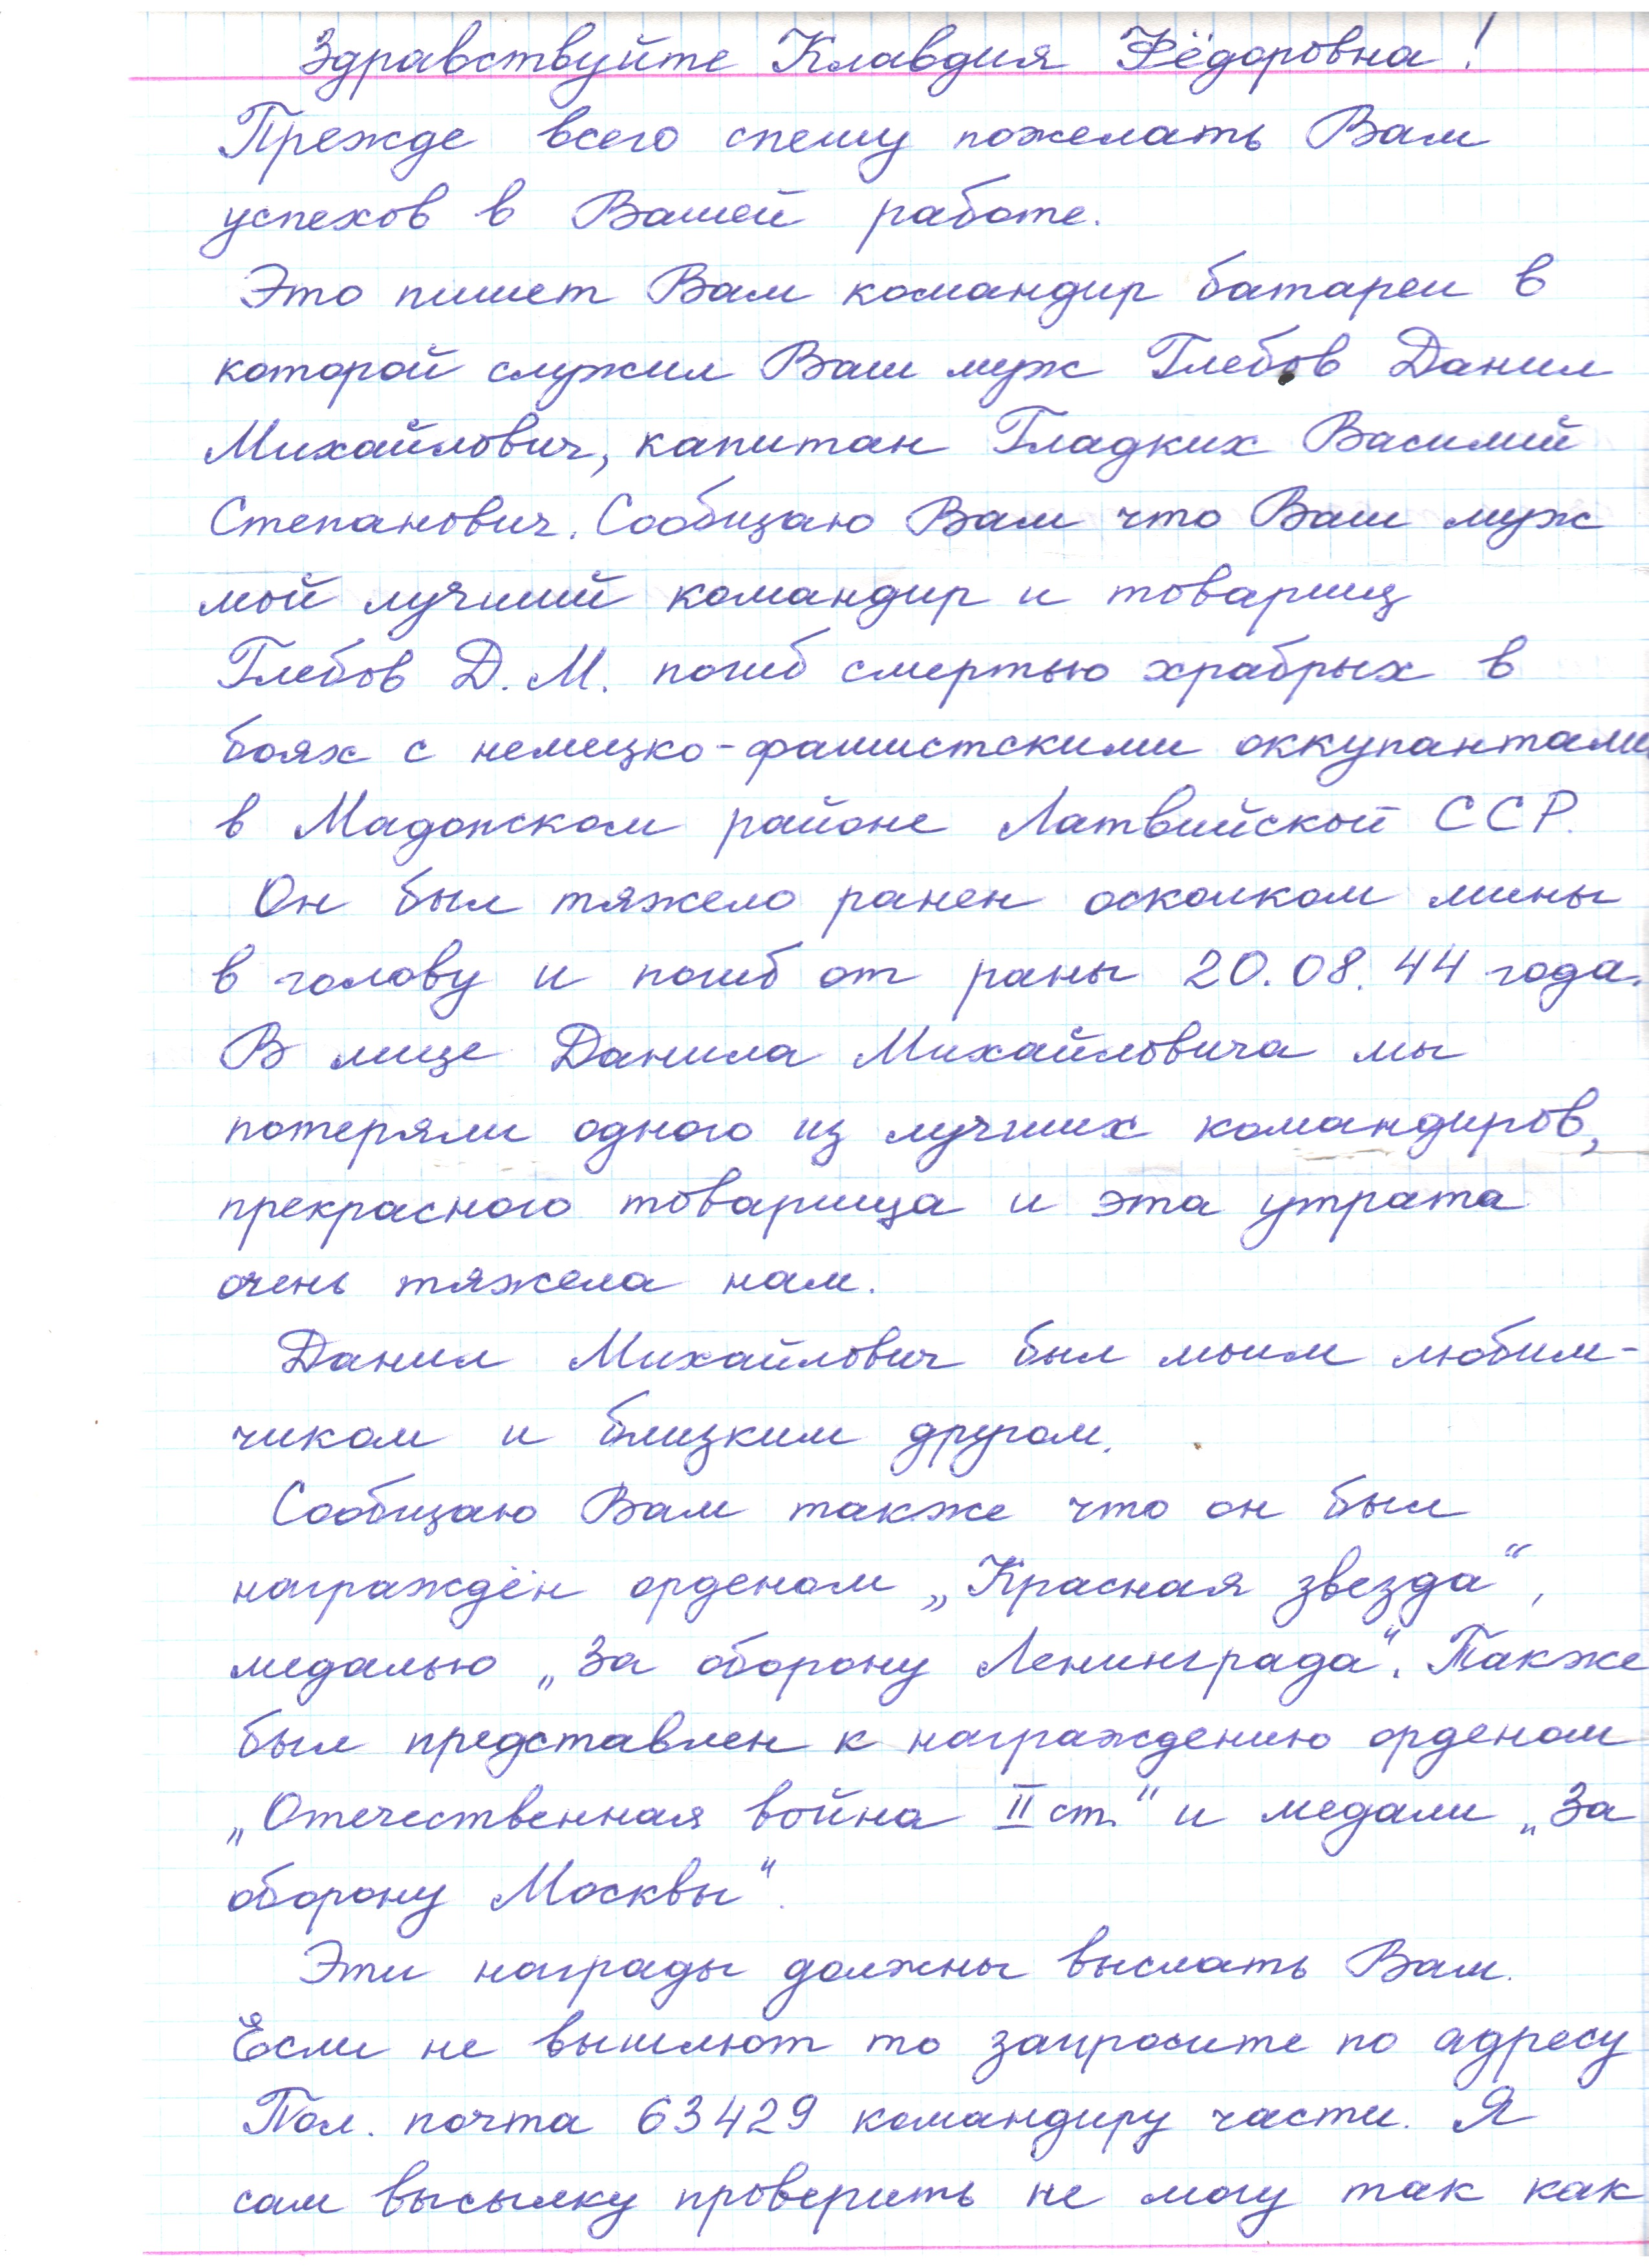 Здравствуйте Клавдия Фёдоровна!
Прежде всего спешу пожелать Вам
успехов в Вашей работе.
Это пишет Вам командир батареи в
которой служил Ваш муж Глебов Данил
Михайлович, капитан Гладких Василий
Степанович. Сообщаю Вам что Ваш муж
мой лучший командир и товарищ
Глебов Д. М. погиб смертью храбрых в
боях с немецко-фашистскими оккупантами
в Мадонском районе Латвийской ССР.
Он был тяжело ранен осколком мины
в голову и погиб от раны 20.08.44 года.
В лице Данила Михайловича мы
потеряли одного из лучших командиров,
прекрасного товарища и эта утрата
очень тяжела нам.
Данил Михайлович был моим любим-
чиком и близким другом.
Сообщаю Вам также что он был
награждён орденом „Красная звезда“,
медалью „За оборону Ленинграда“. Также
был представлен к награждению орденом
„Отечественная война II ст.“ и медали „За
оборону Москвы“.
Эти награды должны выслать Вам.
Если не вышлют то запросите по адресу
Пол. почта 63429 командиру части. Я
сам высылку проверить не могу так как